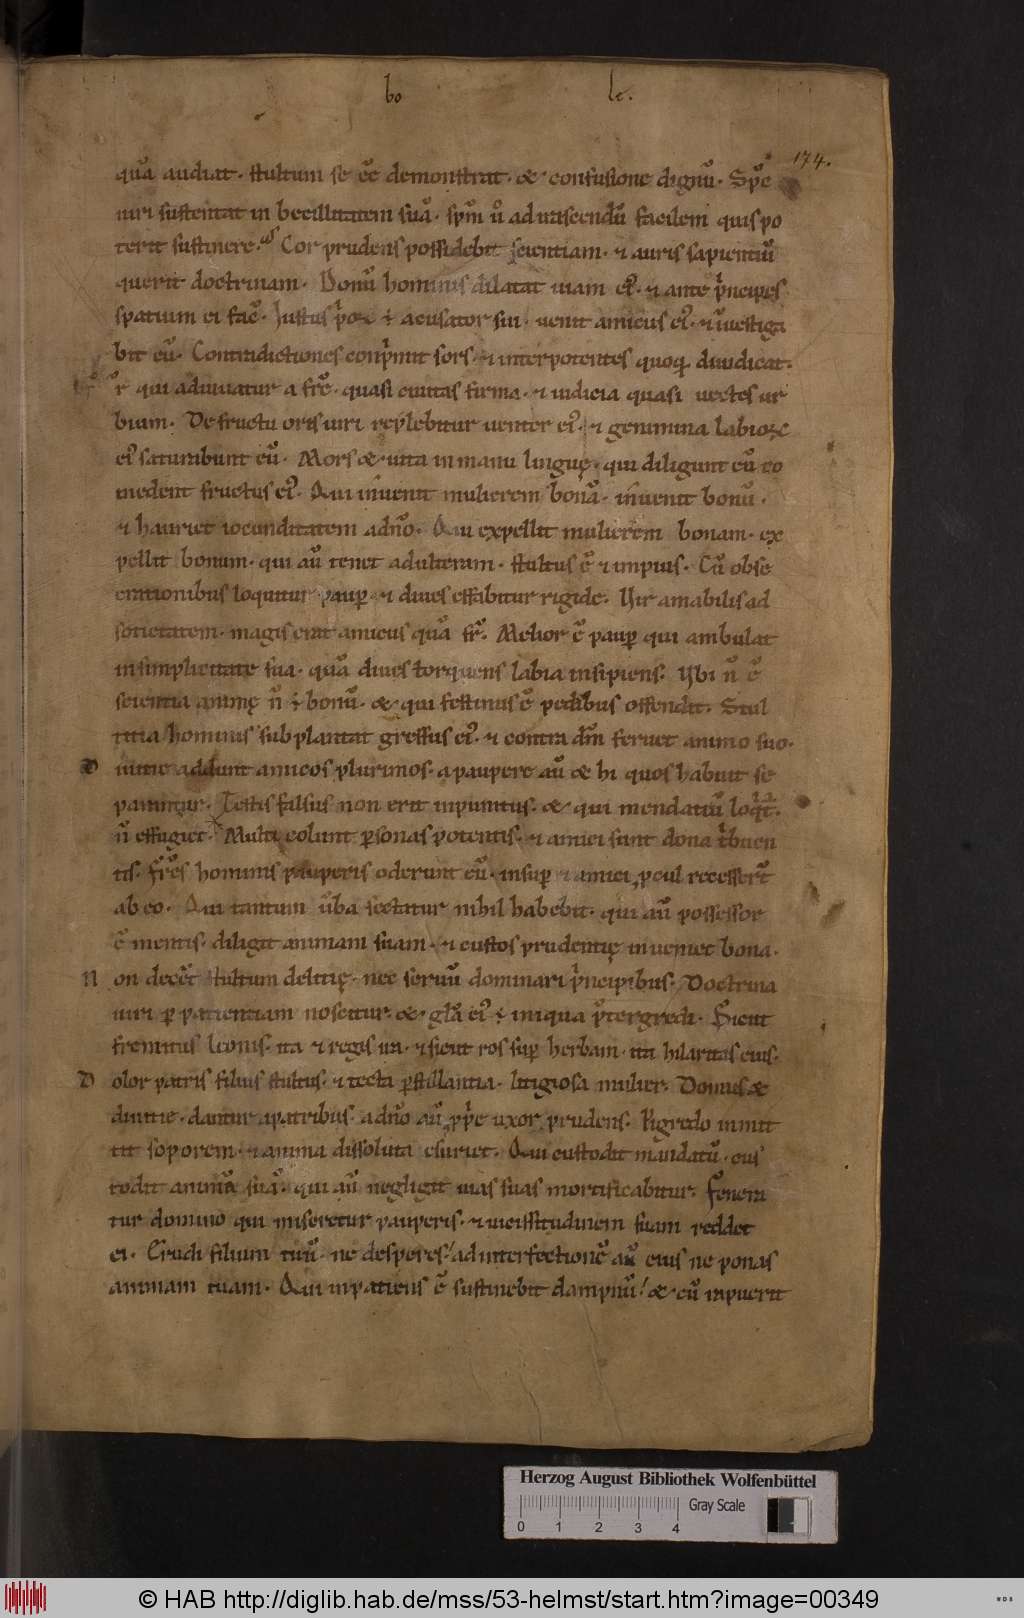 bo le.
174.
quā audiat. stultum se eē demonstrat. & confusione dignū. Spc̄
uiri sustentat inbecillitatem suā. spm̄ u̇ ad irascendū facilem quis po
terit sustinere. Cor prudens possidebit scientiam. & auris sapientiū
querit doctrinam. Donū hominis dilatat uiam ei᾽. & ante p̍ncipes
spatium ei fac̄. Iustus p̍or ē acusator sui. uenit amicus ei᾽. & īuestiga
bit eū. Contradictiones conp̍mit sors. & inter potentes quoq; diiudicat.
Fr̄ qui adiuuatur a frē. quasi ciuitas firma. & iudicia quasi uectes ur
bium. De fructu oris uiri replebitur uenter ei᾽. & genimina labioꝝ
ei᾽ saturabunt eū. Mors & uita in manu linguę. qui diligunt eū co
medent fructus ei᾽. Qui inuenit mulierem bonā. inuenit bonū.
& hauriet iocunditatem a dn̄o. Qui expellit mulierem bonam. ex
pellit bonum. qui aū tenet adulteram. stultus ē & impius. Cū obse
crationibus loquitur paup̄. & diues effabitur rigide. Vir amabilis ad
sotietatem. magis erit amicus quā fr̄. Melior ē paup̄ qui ambulat
in simplicitate sua. quā diues torquens labia insipiens. Vbi n̄ ē
scientia animę n̄ ē bonū. & qui festinus ē pedibus offendit. Stul
titia hominis subplantat gressus ei᾽. & contra dm̄ feruet animo suo.
D iuitie addunt amicos plurimos. a paupere aū & hi quos habuit se
parantur. Testis falsus non erit inpunitus. & qui mendatiū loq̍t᷑.
n̄ effugiet. Multi colunt p̱sonas potentis. & amici sunt dona t̍buen
tis. Fr̄es hominis pauperis oderunt eū. insup̄ & amici ꝓcul recesser̄t
ab eo. Qui tantum ūba sectatur nihil habebit. qui aū possessor
ē mentis. diligit animam suam. & custos prudentię inueniet bona.
N on decēt stultum delitię. nec seruū dominari p̍ncipibus. Doctrina
uiri p̱ patientiam noscitur. & glā ei᾽ ē iniqua p̍tergredi. Sicut
fremitus leonis. ita & regis ira. & sicut ros sup̄ herbam. ita hilaritas eius.
D olor patris filius stultus. & tecta p̱stillantia. litigiosa mulier. Domus &
diuitie. dantur a patribus. a dn̄o aū ꝓp̍e uxor prudens. Pigredo inmit
tit soporem. & anima dissoluta esuriet. Qui custodit mandatū. cus
todit animā suā. qui aū negligit uias suas mortificabitur. Fenera
tur domino qui miseretur pauperis. & uicissitudinem suam reddet
ei. Erudi filium tuū. ne desperes. ad interfectionē aū eius ne ponas
animam tuam. Qui inpatiens ē sustinebit dampnū. & cū inpuerit
Herzog August Bibliothek Wolfenbüttel
Gray Scale
0 1 2 3 4
© HAB http://diglib.hab.de/mss/53-helmst/start.htm?image=00349